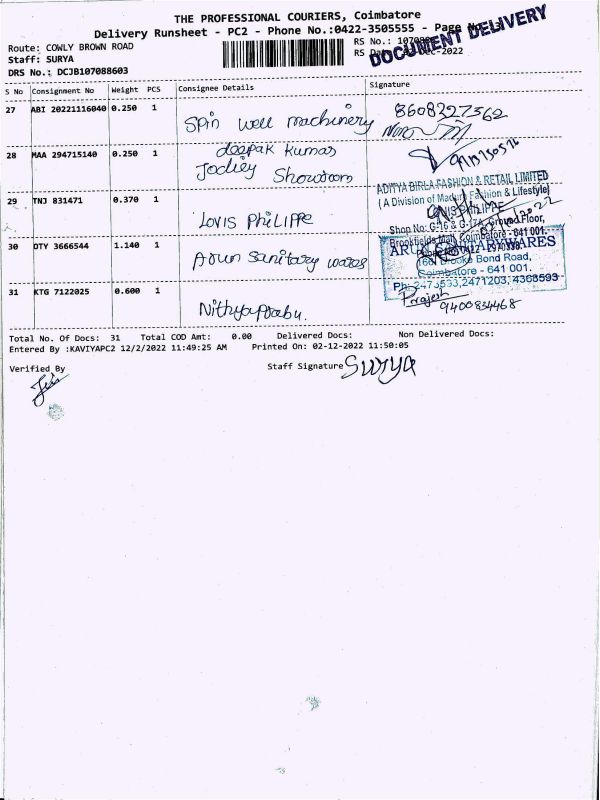 THE PROFESSIONAL COURIERS, Coimbatore
Delivery Runsheet - PC2 - Phone No.:0422-3505555 - Page No.
DOCUMENT DELIVERY
Route: COWLY BROWN ROAD
RS No.:
Staff: SURYA
RS
-2022
DRS No.: DCJB107088603
S No Consignment No Weight PCS Consignee Details Signature
27 ABI 20221116040 0.250 1
Spin well machinery
8608227362
28 MAA 294715140 0.250 1
deepak kumar
Jockey Showroom
29 TNJ 831471 0.370 1
LOVIS PHILIPPE
ADITYA BIRLA FASHION & RETAIL LIMITED
( A Division of Madura Fashion & Lifestyle)
Shop No: G-16 & G-17A, Ground Floor,
Brookfields Mall, Coimbatore - 641 001.
30 OTY 3666544 1.140 1
Arun Sanitary wares
ARUN SANITARYWARES
166, Brooke Bond Road,
Coimbatore - 641 001.
Ph: 2473593, 2471203, 4368593
31 KTG 7122025 0.600 1
Nithyaprabu.
9400834468
Total No. Of Docs: 31 Total COD Amt: 0.00 Delivered Docs: Non Delivered Docs:
Entered By :KAVIYAPC2 12/2/2022 11:49:25 AM Printed On: 02-12-2022 11:50:05
Verified By
Staff Signature SURYA